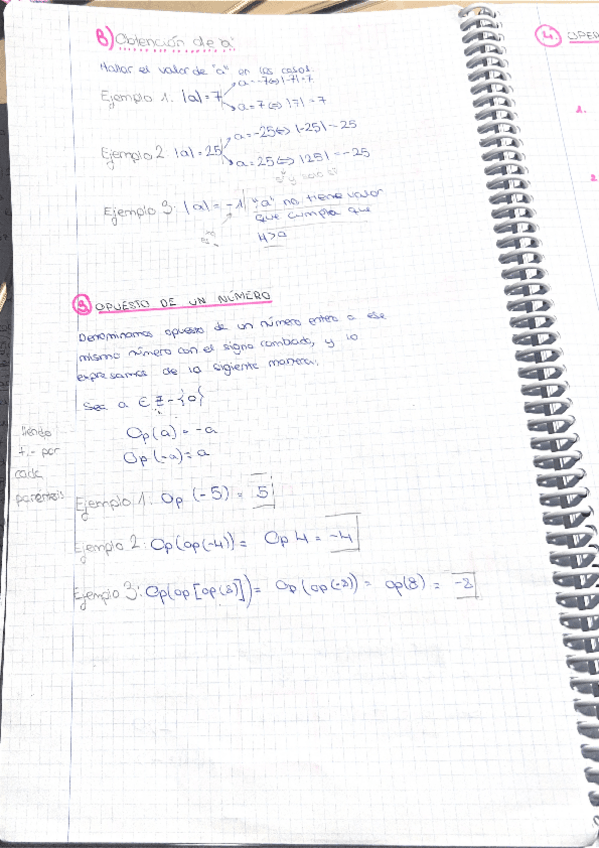 B) Obtención de a:
Hallar el valor de "a" en los casos:
Ejemplo 1: |a|=7
a=-7⇔|-7|=7
a=7⇔|7|=7
Ejemplo 2: |a|=25
a=-25⇔|-25|=25
a=25⇔|25|=-25
Ejemplo 3: |a|=-1 "a" no tiene valor
que cumpla que
3 OPUESTO DE UN NÚMERO
Denominamos opuesto de un número entero a ese
mismo número con el signo cambiado, y lo
expresamos de la sigiente manera:
Sea a ∈ Z-{0}
Op(a) = -a
Op(-a) = a
+.- por
cada
parentesis
Ejemplo 1: Op (-5) = 5
Ejemplo 2: Op(op(-4)) = Op 4 = -4
Ejemplo 3: Op(op[op(8)]) = Op(op(-8)) = op(8) = -8
4. OPER
1.
2